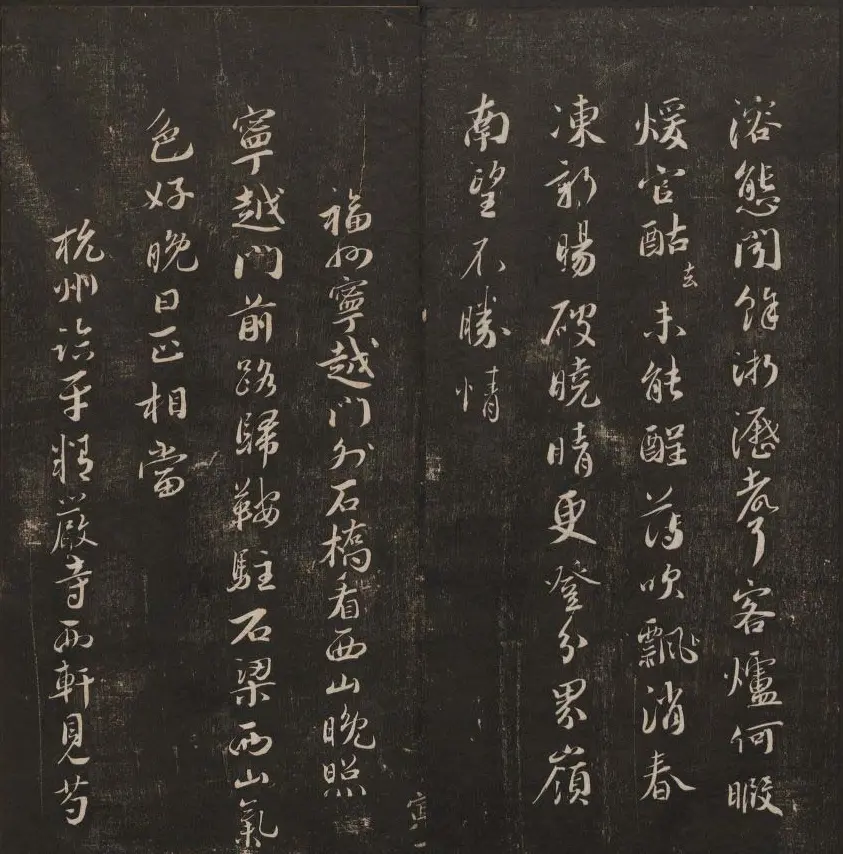 溶態聞餘淅瀝聲客爐何暇
煖官酤去未能醒薄吹飄消春
凍新暘破曉晴更登分界嶺
南望不勝情
福州寧越門外石橋看西山晚照
寧越門前路歸鞍駐石梁西山氣
色好晚日正相當
杭州臨平精嚴寺西軒見芍